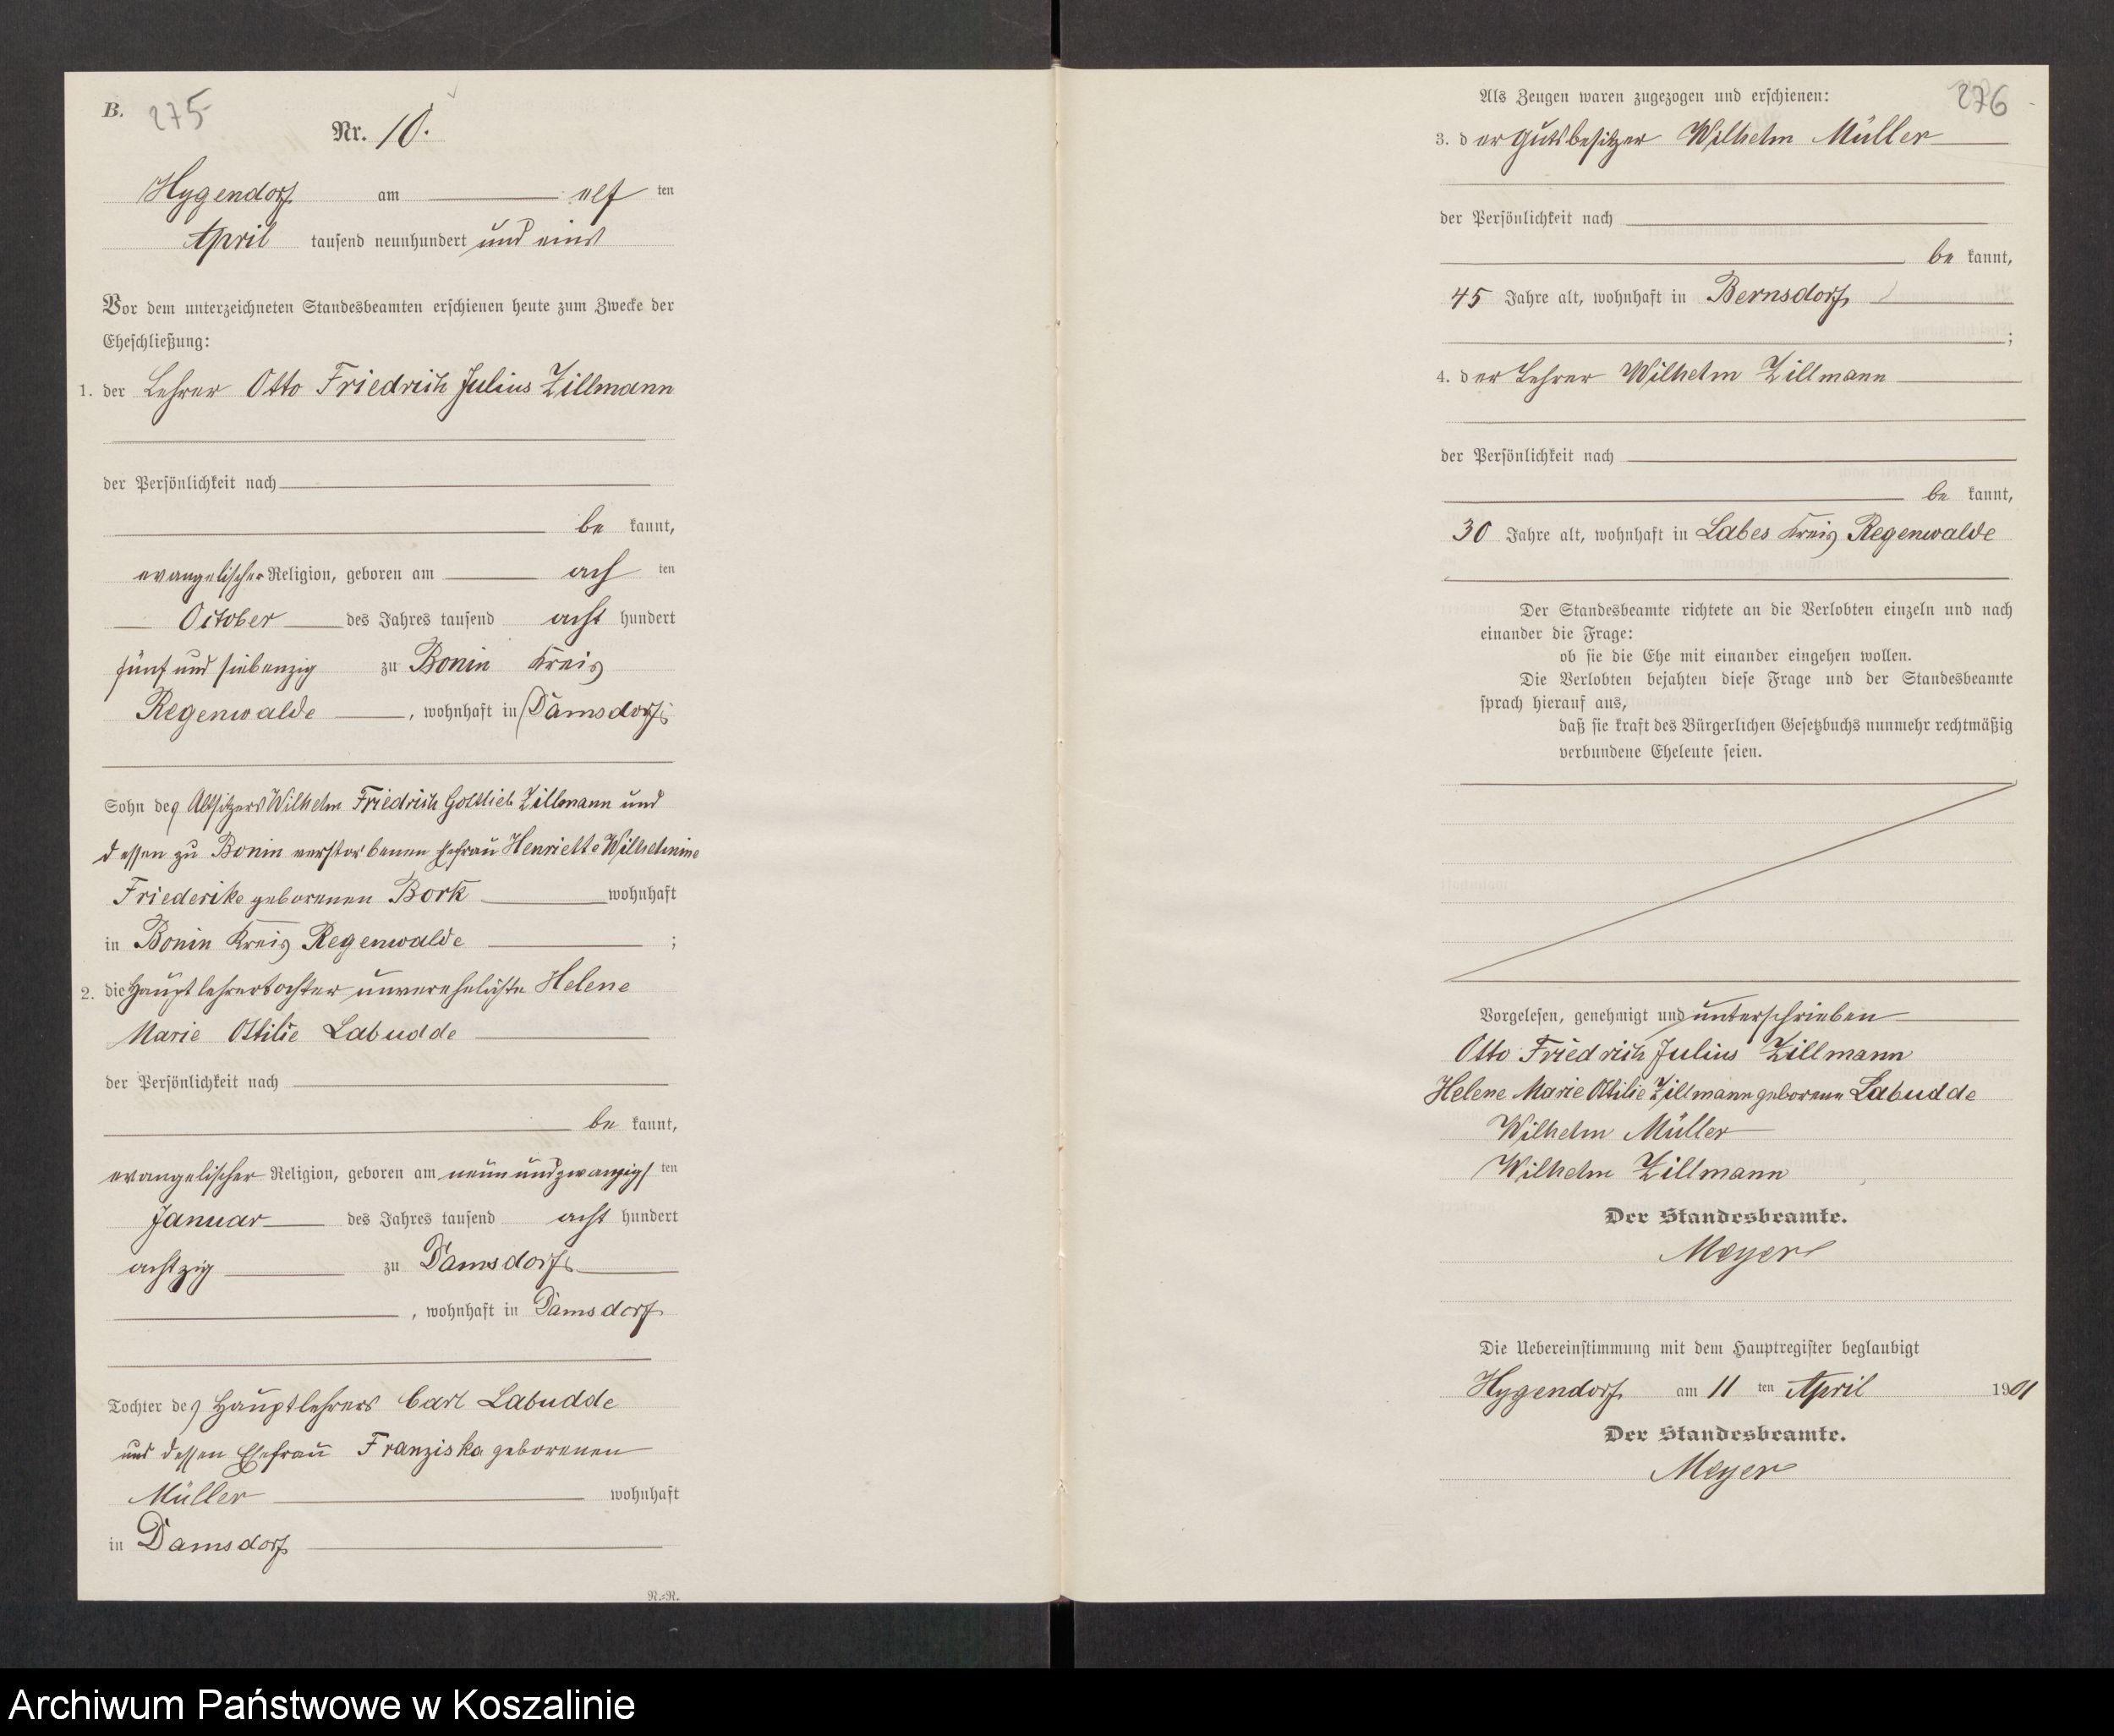 B. 275
Nr. 10.
Hygendorf am elf ten
April tausend neunhundert und eins
Vor dem unterzeichneten Standesbeamten erschienen heute zum Zwecke der
Eheschließung:
1. der Lehrer Otto Friedrich Julius Zillmann
der Persönlichkeit nach
be kannt,
evangelischer Religion, geboren am ach ten
October des Jahres tausend acht hundert
fünf und siebenzig zu Bonin Kreis
Regenwalde, wohnhaft in Damsdorf
Sohn des Altsitzers Wilhelm Friedrich Gottlieb Zillmann und
dessen zu Bonin verstorbenen Ehefrau Henriette Wilhelmine
Friederike geborenen Bork wohnhaft
in Bonin Kreis Regenwalde ;
2. die Hauptlehrertochter unverehelichte Helene
Marie Ottilie Labudde
der Persönlichkeit nach
be kannt,
evangelischer Religion, geboren am neunundzwanzigs ten
Januar des Jahres tausend acht hundert
achtzig zu Damsdorf
, wohnhaft in Damsdorf
Tochter des Hauptlehrers Carl Labudde
und dessen Ehefrau Franziska geborenen
Müller wohnhaft
in Damsdorf
N.=N.
276
Als Zeugen waren zugezogen und erschienen:
3. der Gutsbesitzer Wilhelm Müller
der Persönlichkeit nach
be kannt,
45 Jahre alt, wohnhaft in Bernsdorf
;
4. der Lehrer Wilhelm Zillmann
der Persönlichkeit nach
be kannt,
30 Jahre alt, wohnhaft in Labes Kreis Regenwalde
Der Standesbeamte richtete an die Verlobten einzeln und nach
einander die Frage:
ob sie die Ehe mit einander eingehen wollen.
Die Verlobten bejahten diese Frage und der Standesbeamte
sprach hierauf aus,
daß sie kraft des Bürgerlichen Gesetzbuchs nunmehr rechtmäßig
verbundene Eheleute seien.
Vorgelesen, genehmigt und unterschrieben
Otto Friedrich Julius Zillmann
Helene Marie Ottilie Zillmann geborene Labudde
Wilhelm Müller
Wilhelm Zillmann
Der Standesbeamte.
Meyer
Die Uebereinstimmung mit dem Hauptregister beglaubigt
Hygendorf am 11 ten April 1901
Der Standesbeamte.
Meyer
Archiwum Państwowe w Koszalinie